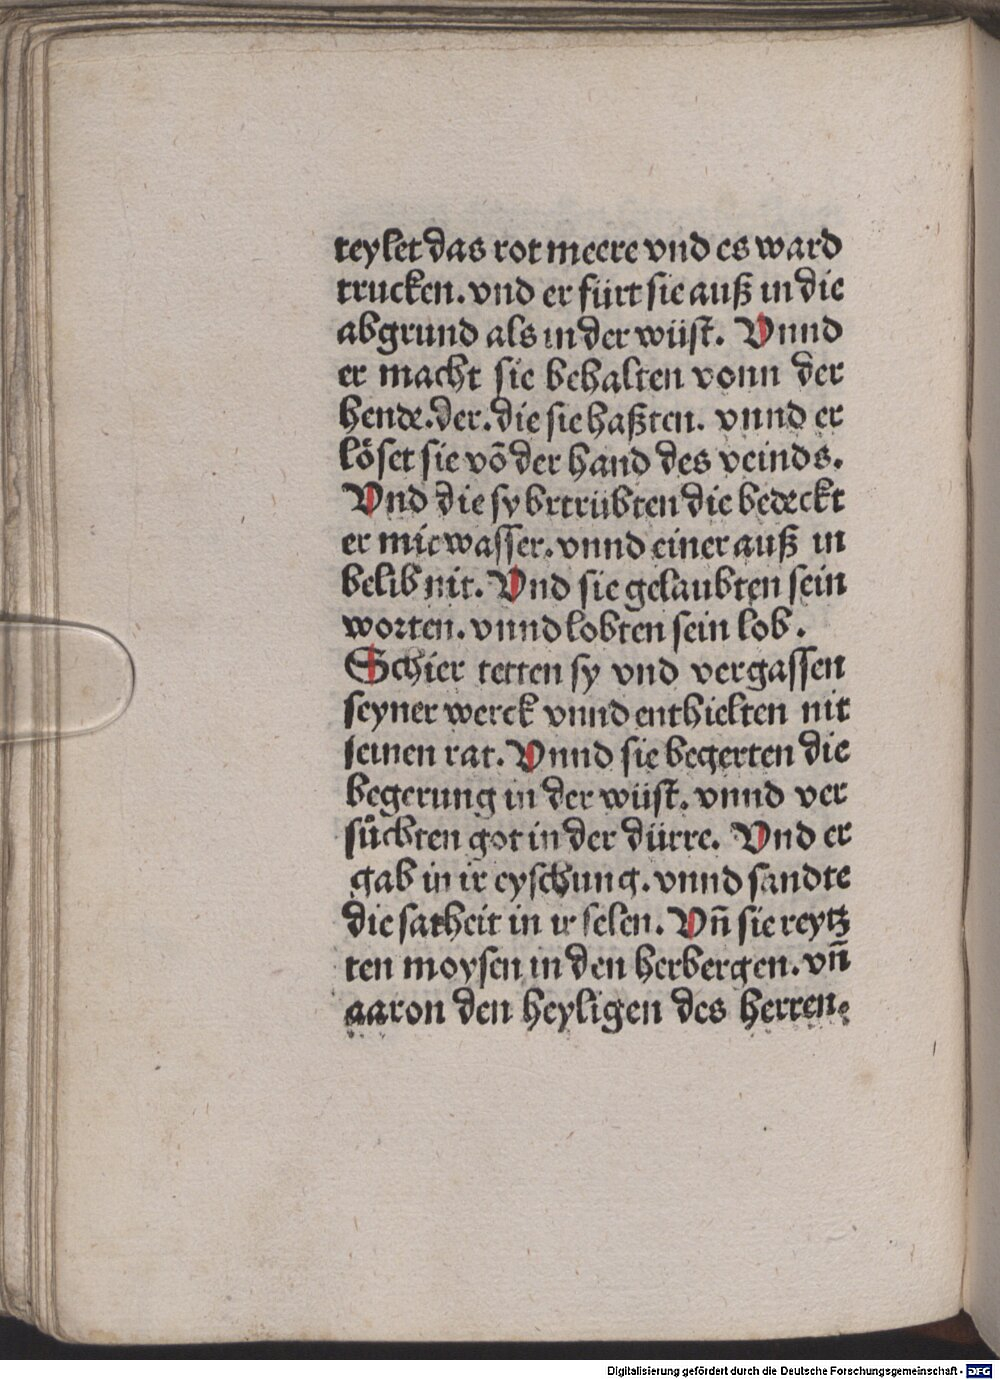 teylet das rot meere vnd es ward
trucken. vnd er fürt sie auß in die
abgrund als in der wüst. Vnnd
er macht sie behalten vonn der
hende. der. die sie haßten. vnnd er
löset sie võ der hand des veinds.
Vnd die sy brtrübten die bedeckt
er mit wasser. vnnd einer auß in
belib nit. Vnd sie gelaubten sein
worten. vnnd lobten sein lob.
Schier tetten sy vnd vergassen
seyner werck vnnd enthielten nit
seinen rat. Vnnd sie begerten die
begerung in der wüst. vnnd ver
sůchten got in der dürre. Vnd er
gab in ir eyschung. vnnd sandte
die satheit in ir selen. Vñ sie reytz
ten moysen in den herbergen. vñ
aaron den heyligen des herren.
Digitalisierung gefördert durch die Deutsche Forschungsgemeinschaft - DFG